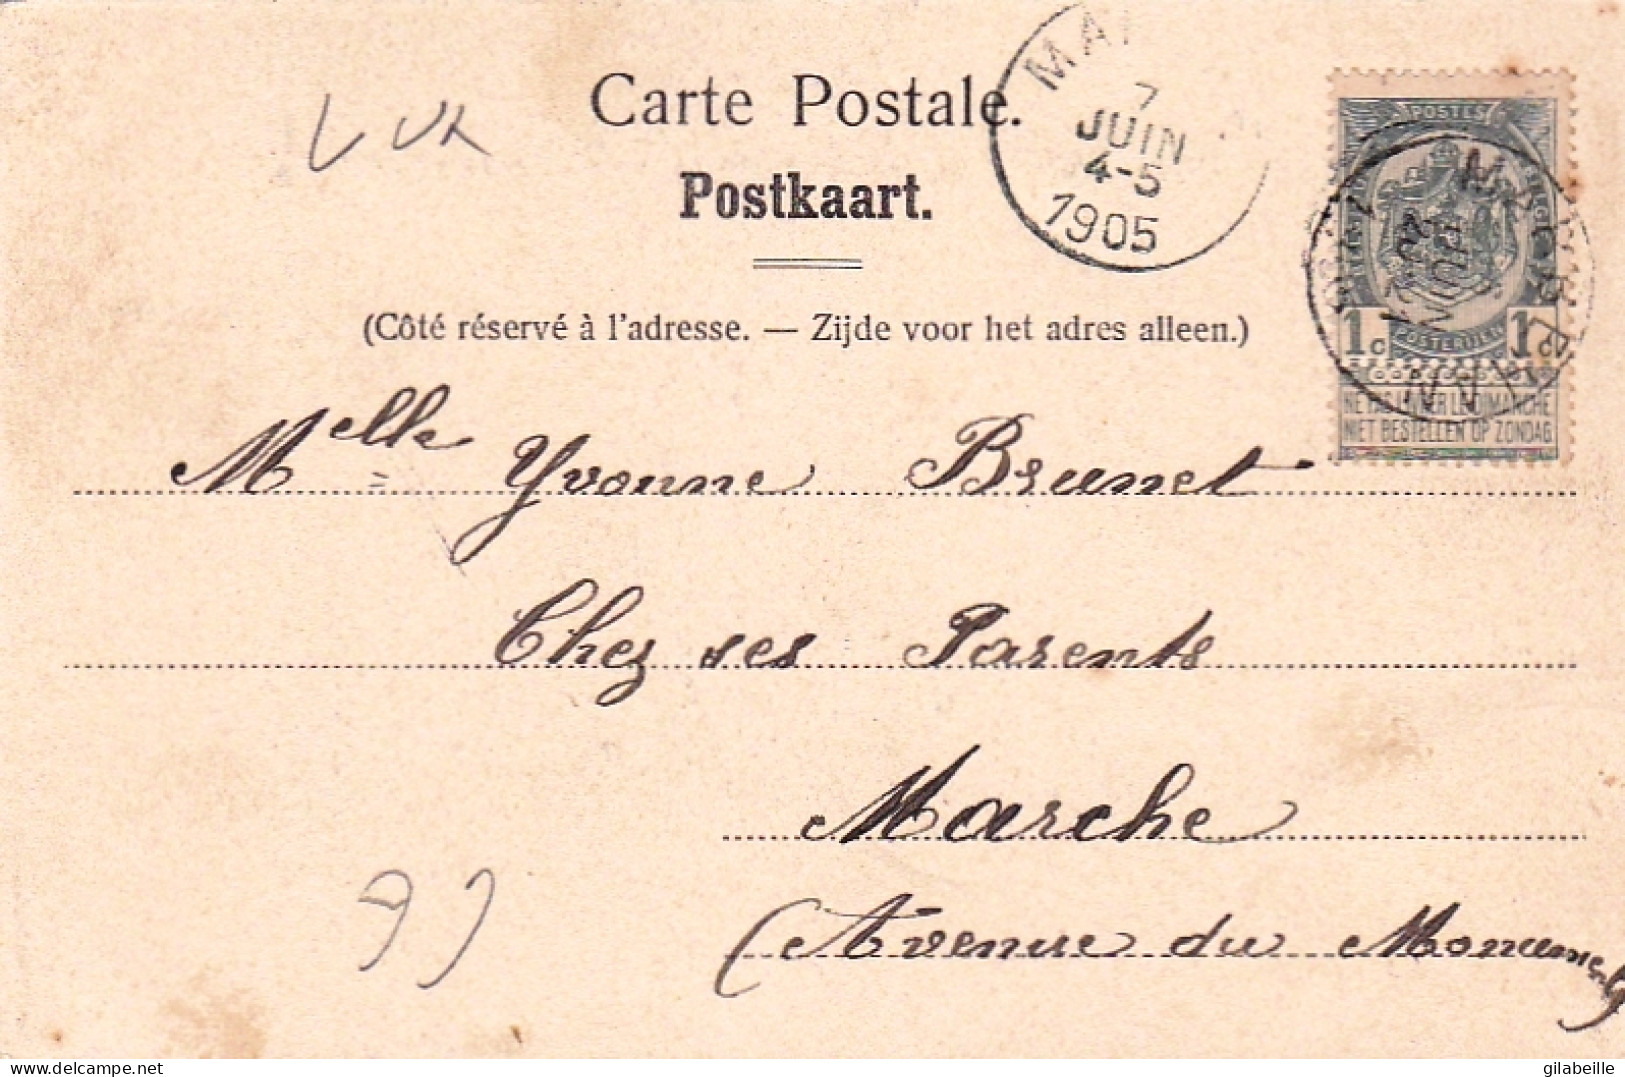 Carte Postale.
Postkaart.
(Côté réservé à l'adresse. — Zijde voor het adres alleen.)
7
JUIN
4-5
1905
POSTES
1c POSTERIJEN 1c
NE PAS LIVRER LE DIMANCHE
NIET BESTELLEN OP ZONDAG
Melle Yvonne Brunet
Chez ses Parents
Marche
(Avenue du Monument)
gilabeille